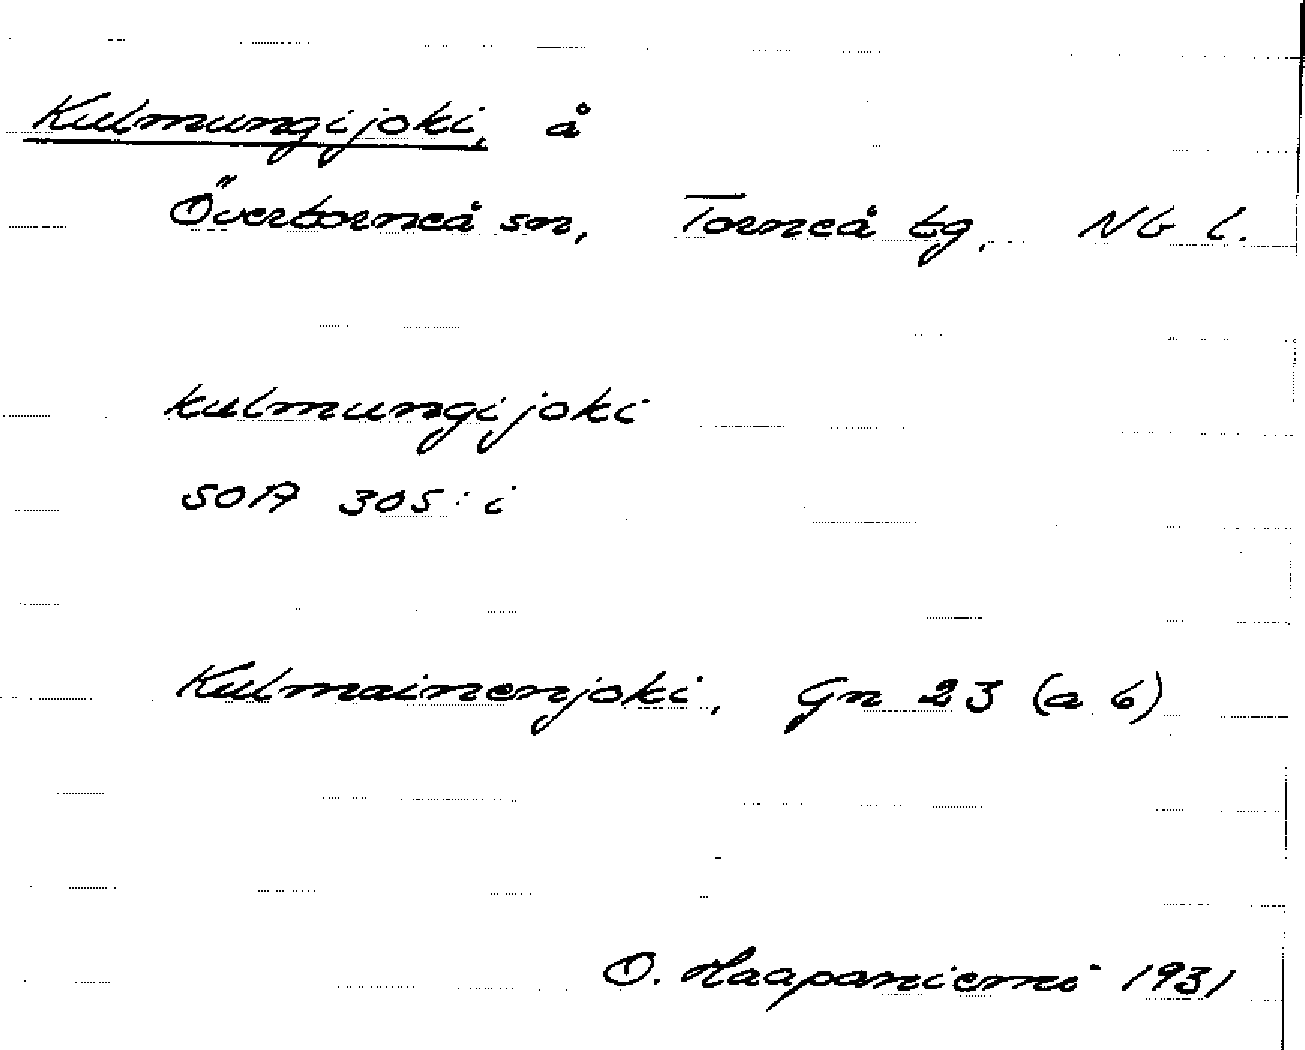 Kulmungijoki, å
Övertorneå sn, Torneå tg, Nb l.
kulmungijoki
SOA 305:i
Kulmainenjoki, Gn 23 (a 6)
O. Haapaniemi 1931